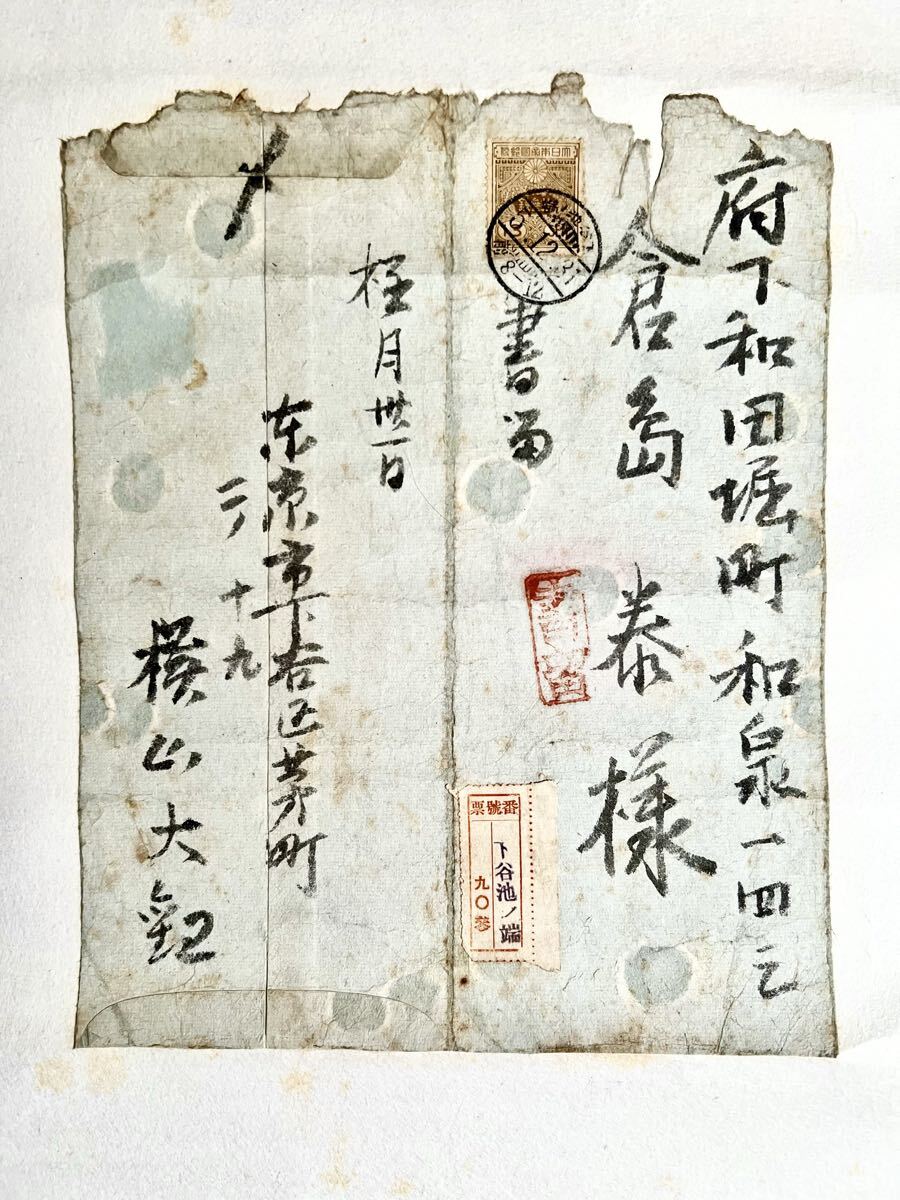 府下和田堀町和泉一四三
倉島泰様
書留
大日本帝國郵便
番號票
下谷池ノ端
九〇參
〆
極月卅一日
东京市下谷区茅町
二ノ十九
横山大観